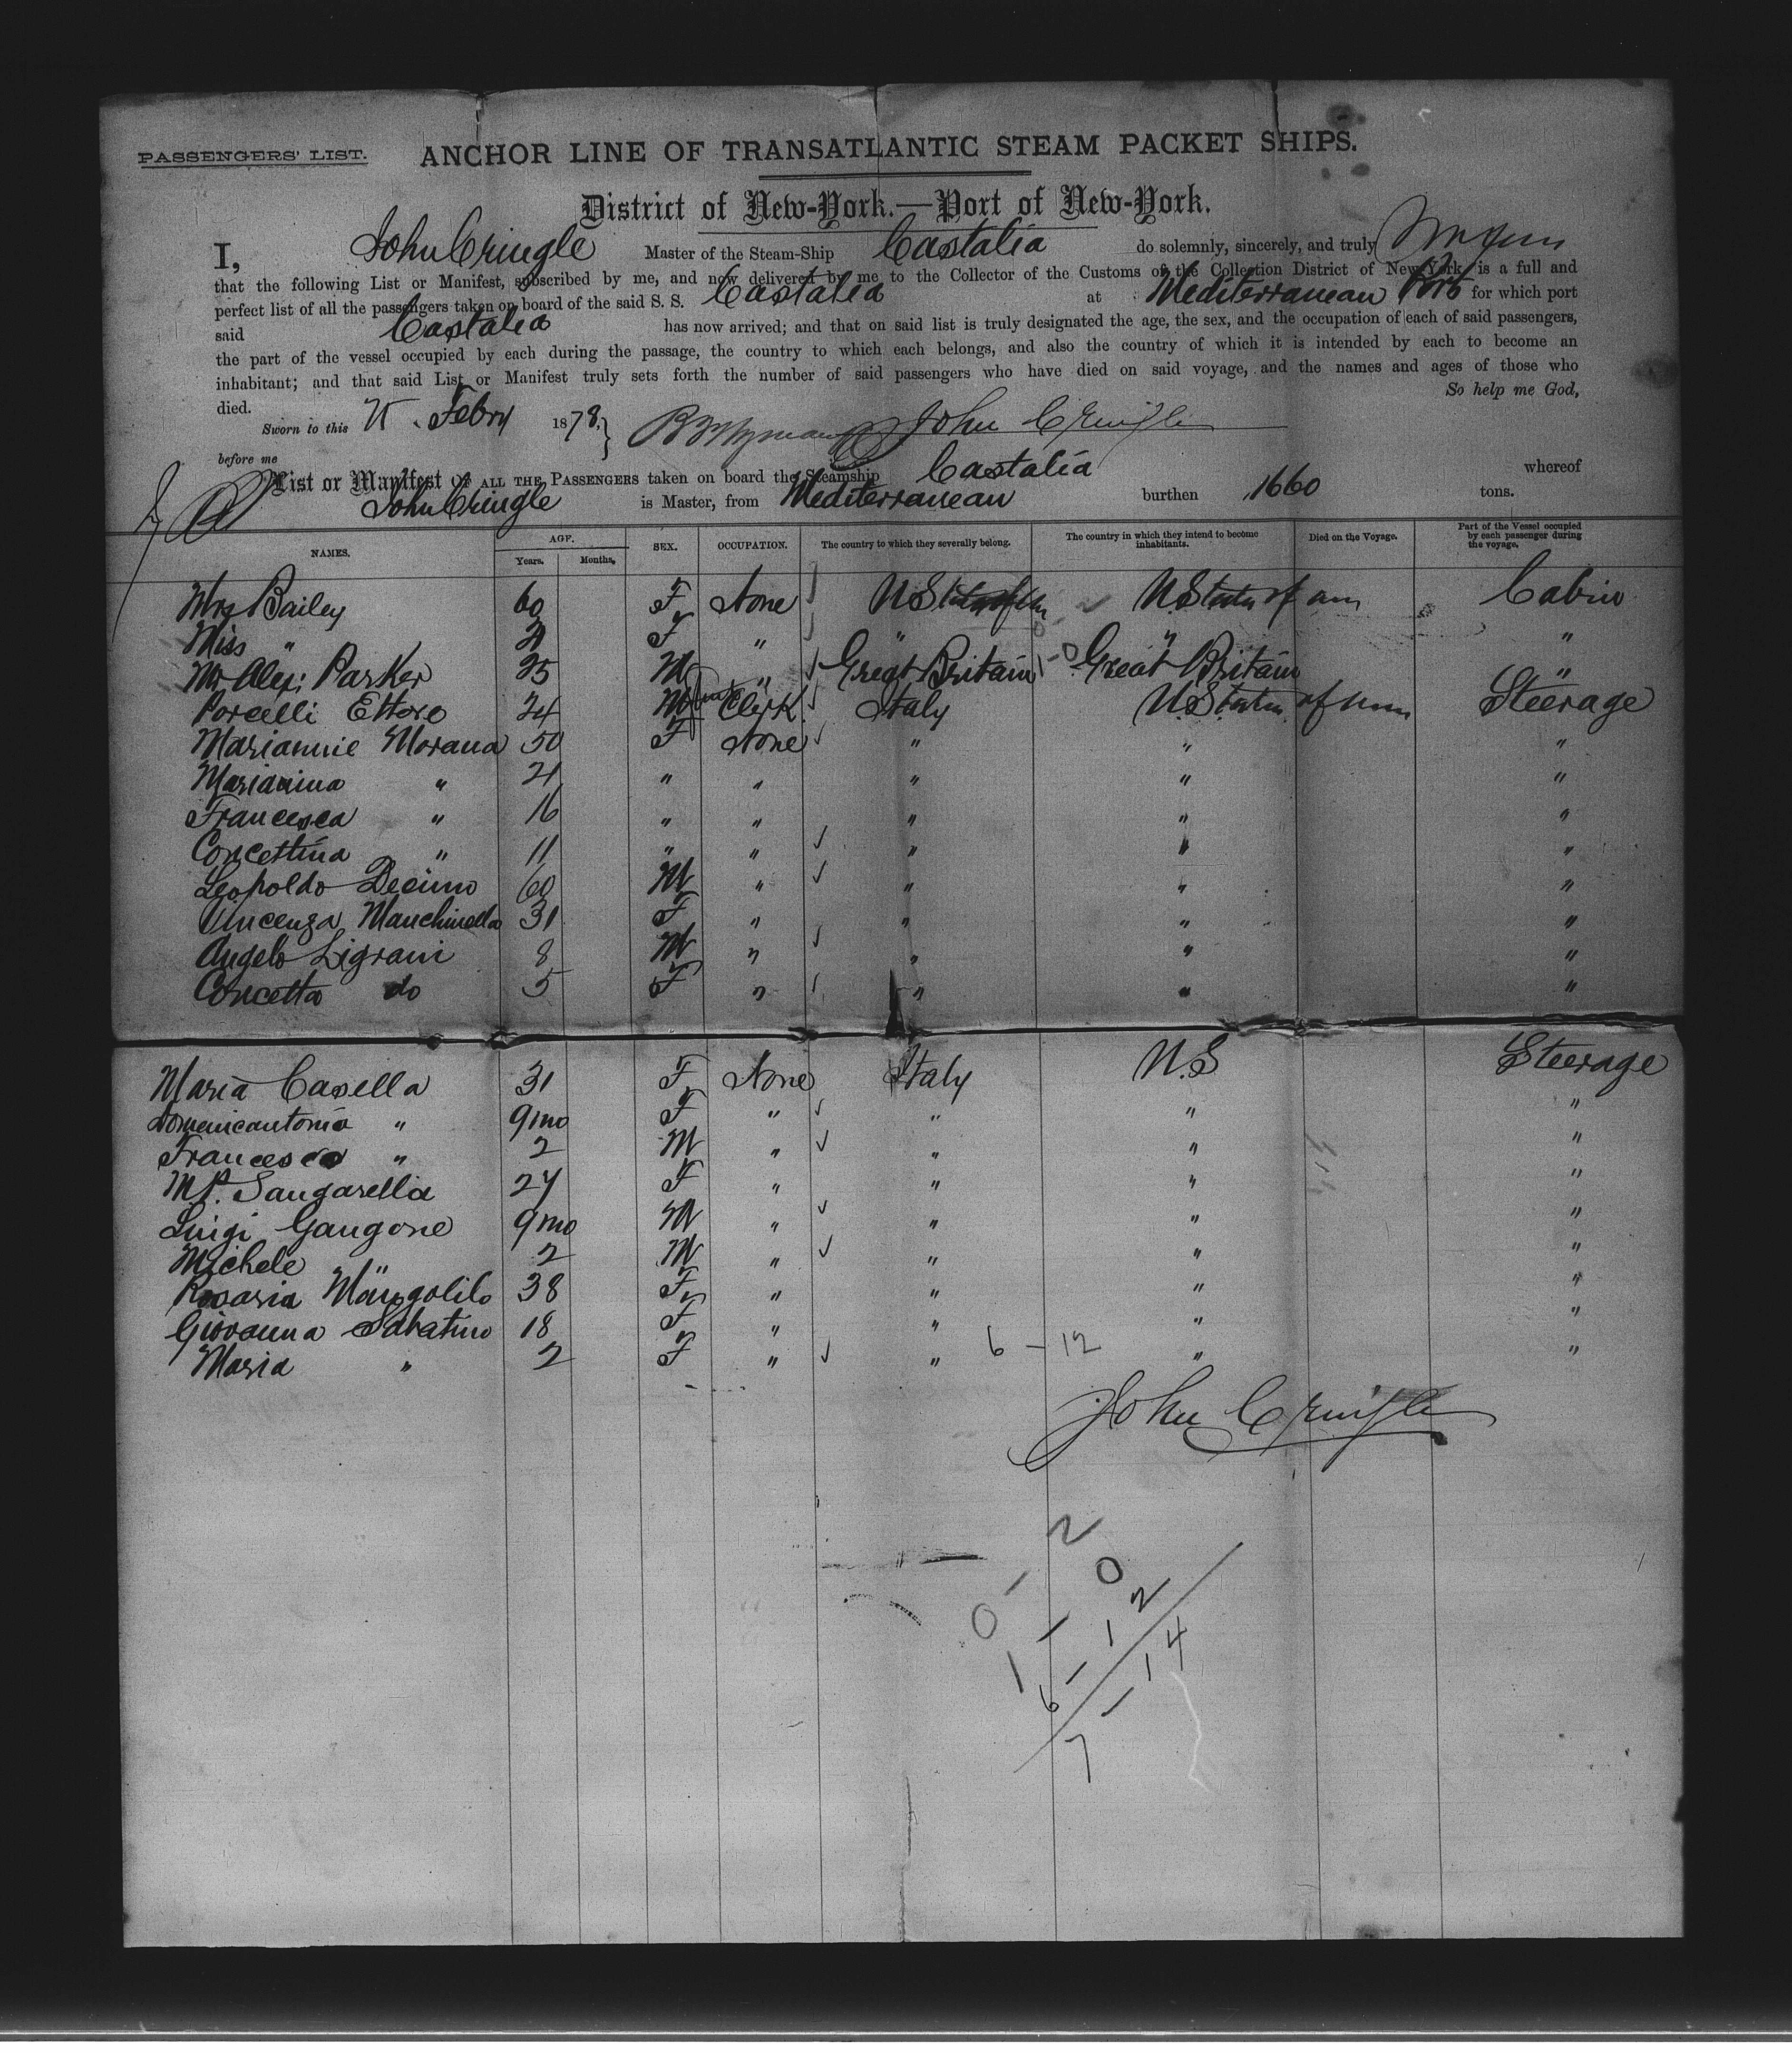 PASSENGERS' LIST. ANCHOR LINE OF TRANSATLANTIC STEAM PACKET SHIPS.
District of New-York.—Port of New-York.
I, John Cringle Master of the Steam-Ship Castalia do solemnly, sincerely, and truly
that the following List or Manifest, subscribed by me, and now delivered by me to the Collector of the Customs of the Collection District of New York, is a full and
perfect list of all the passengers taken on board of the said S. S. Castalia at Mediterranean Ports for which port
said Castalia has now arrived; and that on said list is truly designated the age, the sex, and the occupation of each of said passengers,
the part of the vessel occupied by each during the passage, the country to which each belongs, and also the country of which it is intended by each to become an
inhabitant; and that said List or Manifest truly sets forth the number of said passengers who have died on said voyage, and the names and ages of those who
died. So help me God,
Sworn to this Febry 1878.} John Cringle
before me
List or Manifest OF ALL THE PASSENGERS taken on board the Steamship Castalia whereof
John Cringle is Master, from Mediterranean burthen 1660 tons.
NAMES. AGE. Years. Months. SEX. OCCUPATION. The country to which they severally belong. The country in which they intend to become inhabitants. Died on the Voyage. Part of the Vessel occupied by each passenger during the voyage.
Mrs Bailey 60 F None U States of Am U States of am Cabin
Miss " F " " " "
Mr Alex: Parker 35 M " Great Britain Great Britain "
Porcelli Ettore 24 M Clerk Italy U. States of Am Steerage
Mariannie Morana 50 F None " " "
Marianina " 21 " " " " "
Francesca " 16 " " " " "
Concettina " 11 " " " " "
Leopoldo Decimo 60 M " " " "
Vincenza Manchinella 31 F " " " "
Angelo Ligrani 8 M " " " "
Concetta do 5 F " " " "
Maria Casella 31 F None Italy U.S Steerage
Domenicantonia " 9mo F " " " "
Francesco " 2 M " " " "
Ma. Sangarella 27 F " " " "
Luigi Gangone 9mo M " " " "
Michele " 2 M " " " "
Rosaria Mangolilo 38 F " " " "
Giovanna Sabatino 18 F " " " "
Maria " 2 F " " 6 - 12 " "
John Cringle
2
0 - 0
1 - 12
6 - 14
7 -